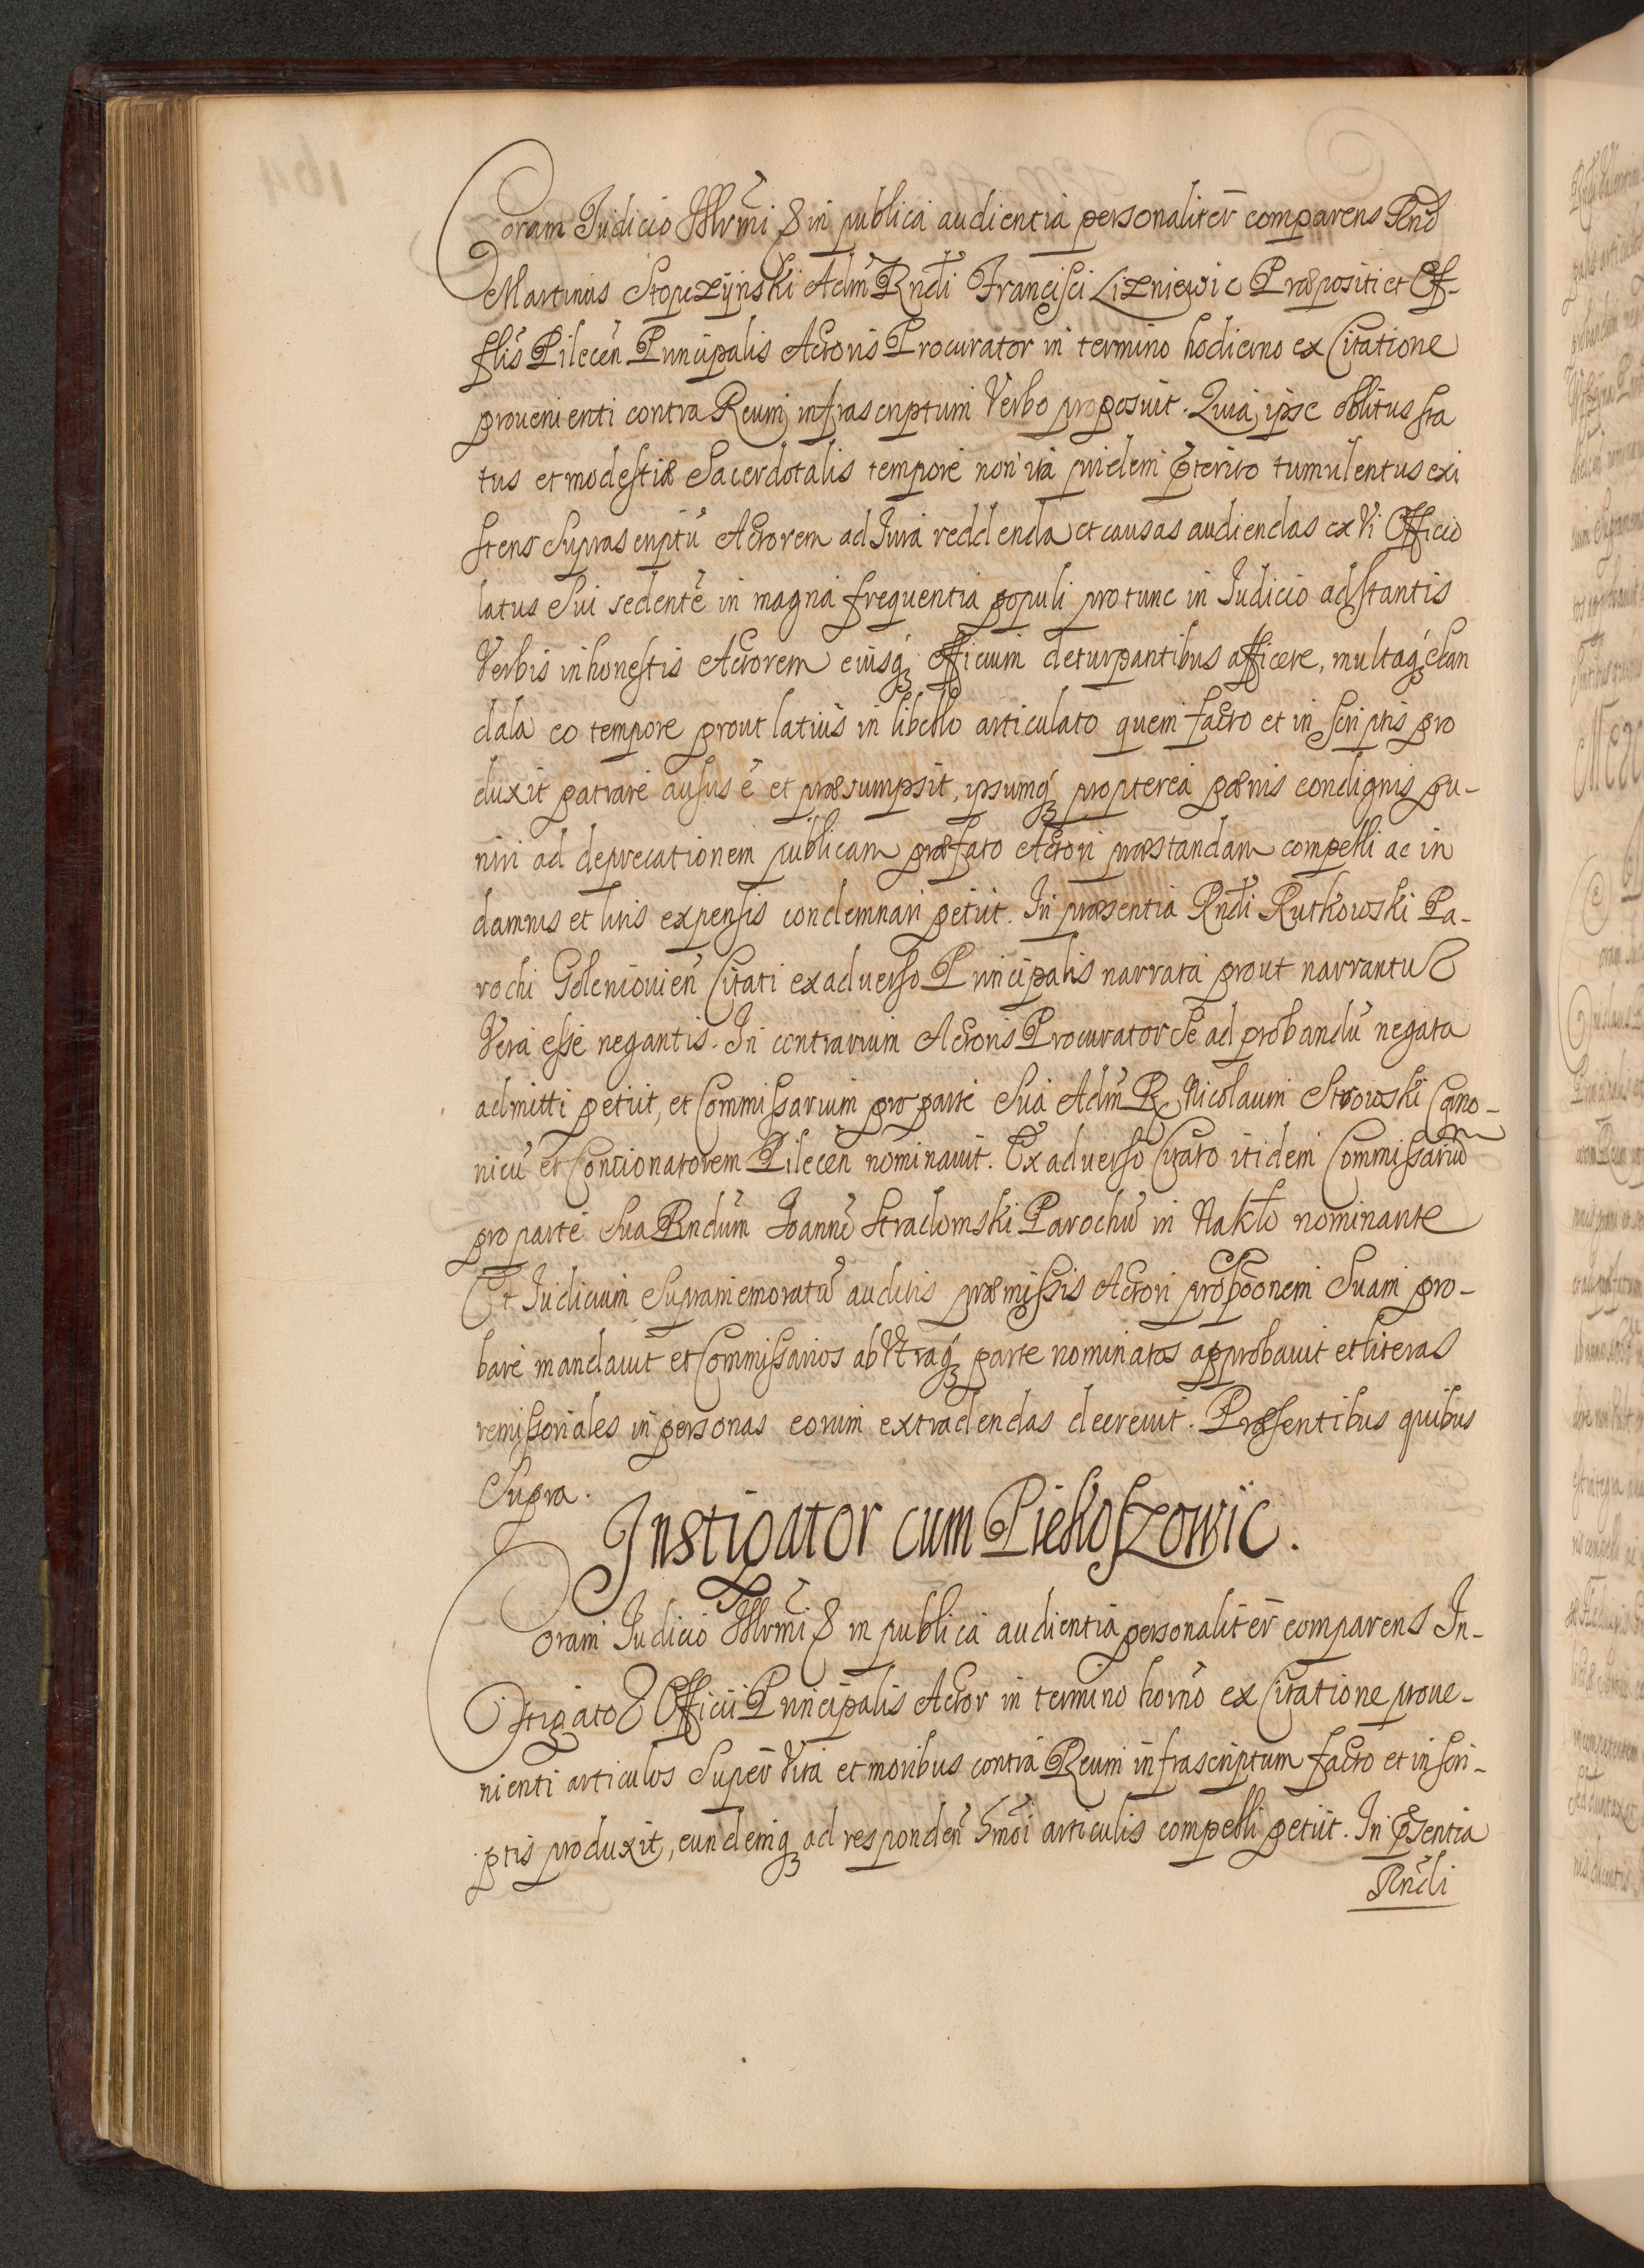 Coram Iudicio Illrmi & in publica audientia personaliter comparens Rnd
Martinus Stopczyński Adm Rndi Francisci Lizniewic Præpositi et Of-
flis Pilecen Principalis Actoris Procurator in termino hodierno ex Citatione
prouenienti contra Reum infrascriptum Verbo proposuit. Quia ipse oblitus sta
tus et modestiæ Sacerdotalis tempore non ita pridem pterito tumulentus exi
stens Suprascriptū Actorem ad Iura reddenda et causas audiendas ex Vi Officio
latus Sui sedentē in magna frequentia populi pro tunc in Iudicio adstantis
Verbis inhonestis Actorem eiusq officium deturpantibus afficere, multaq Scan
dala eo tempore prout latius in libello articulato quem facto et in scriptis pro
duxit patrare ausus ē et præsumpsit, ipsumq propterea pœnis condignis pu-
niri ad deprecationem publicam præfato Actori præstandam compelli ac in
damnis et litis expensis condemnari petiit. In præsentia Rndi Rutkowski Pa-
rochi Goleniouien Citati ex aduerso Principalis narrata prout narrantur
Vera esse negantis. In contrarium Actoris Procurator Se ad probandū negata
admitti petiit, et Commissarium pro parte Sua Adm R Nicolaum Strowski Cano-
nicū et Concionatorem Pilecen nominauit. Ex aduerso Citato itidem Commissariū
pro parte Sua Rndum Joannē Stradomski Parochū in Nakło nominante
Et Iudicium Supramemoratū auditis præmissis Actori propōonem Suam pro-
bare mandauit et Commissarios ab Vtraq parte nominatos approbauit et literas
remissoriales in personas eorum extradendas decreuit. Præsentibus quibus
Supra.
Instigator cum Piekoszowic.
Coram Iudicio Illrmi & in publica audientia personaliter comparens In-
stigator Officii Principalis Actor in termino horno ex Citatione proue-
nienti articulos Super Vita et moribus contra Reum infrascriptum facto et in scri-
ptis produxit, eundemq ad responden hmoi articulis compelli petiit. In psentia
Rndi